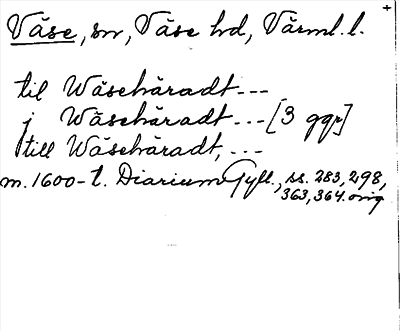 Väse, sn, Väse hd, Värml. l. +
til Wäsehäradt---
j Wäsehäradt---[3 ggr]
till Wäsehäradt,---
m. 1600-t. Diarium Gyll., ss. 283, 298,
363, 364. orig